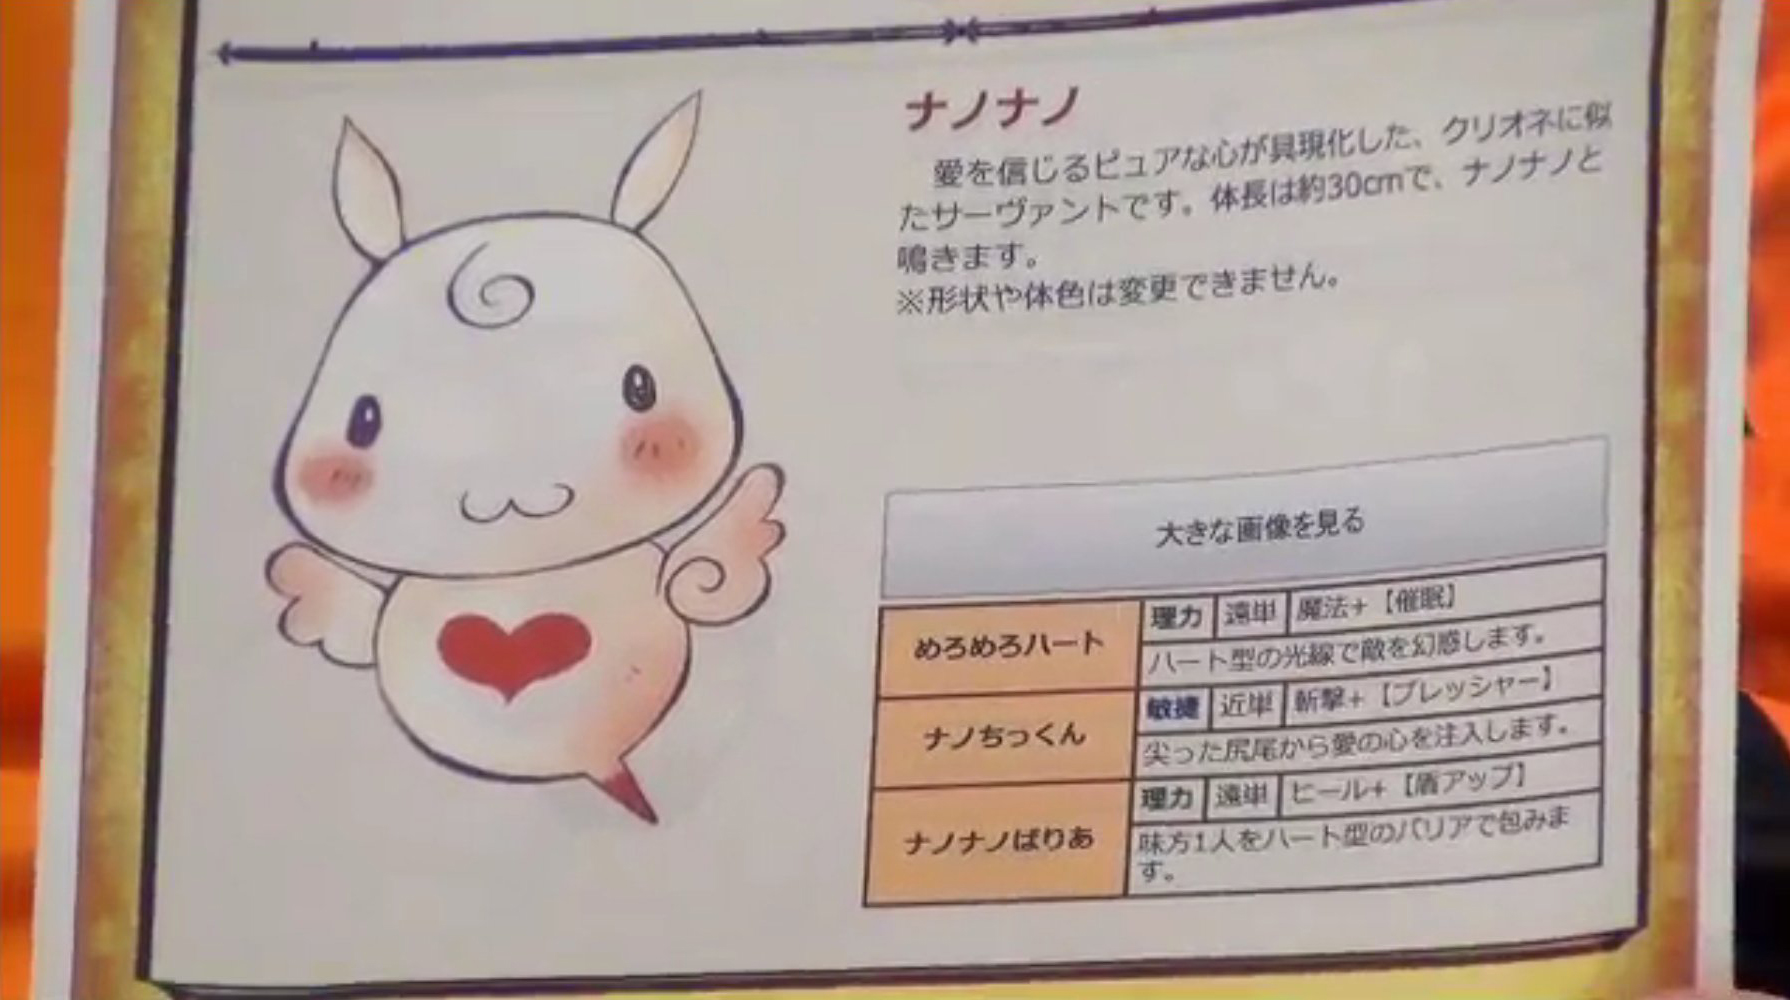 ナノナノ
愛を信じるピュアな心が具現化した、クリオネに似
たサーヴァントです。体長は約30cmで、ナノナノと
鳴きます。
※形状や体色は変更できません。
大きな画像を見る
めろめろハート
理力 遠単 魔法+【催眠】
ハート型の光線で敵を幻惑します。
ナノちっくん
敏捷 近単 斬撃+【プレッシャー】
尖った尻尾から愛の心を注入します。
ナノナノばりあ
理力 遠単 ヒール+【盾アップ】
味方1人をハート型のバリアで包みま
す。